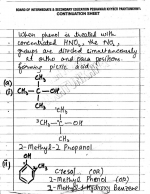 BOARD OF INTERMEDIATE & SECONDARY EDUCATION PESHAWAR KHYBER PAKHTUNKHWA
CONTINUATION SHEET
When phenol is treated with
concentrated HNO3, the NO2
groups are divided simultaneously
at ortho and para positions
forming picric acid.
(a)
(i)
CH3
CH3-C-OH
CH3
CH3
H3C-C-OH
CH3
2-Methyl-2 Propanol
(ii)
OH
CH3
Cresol (OR)
2-Methyl Phenol (OR)
2-Methyl-Hydroxy Benzene